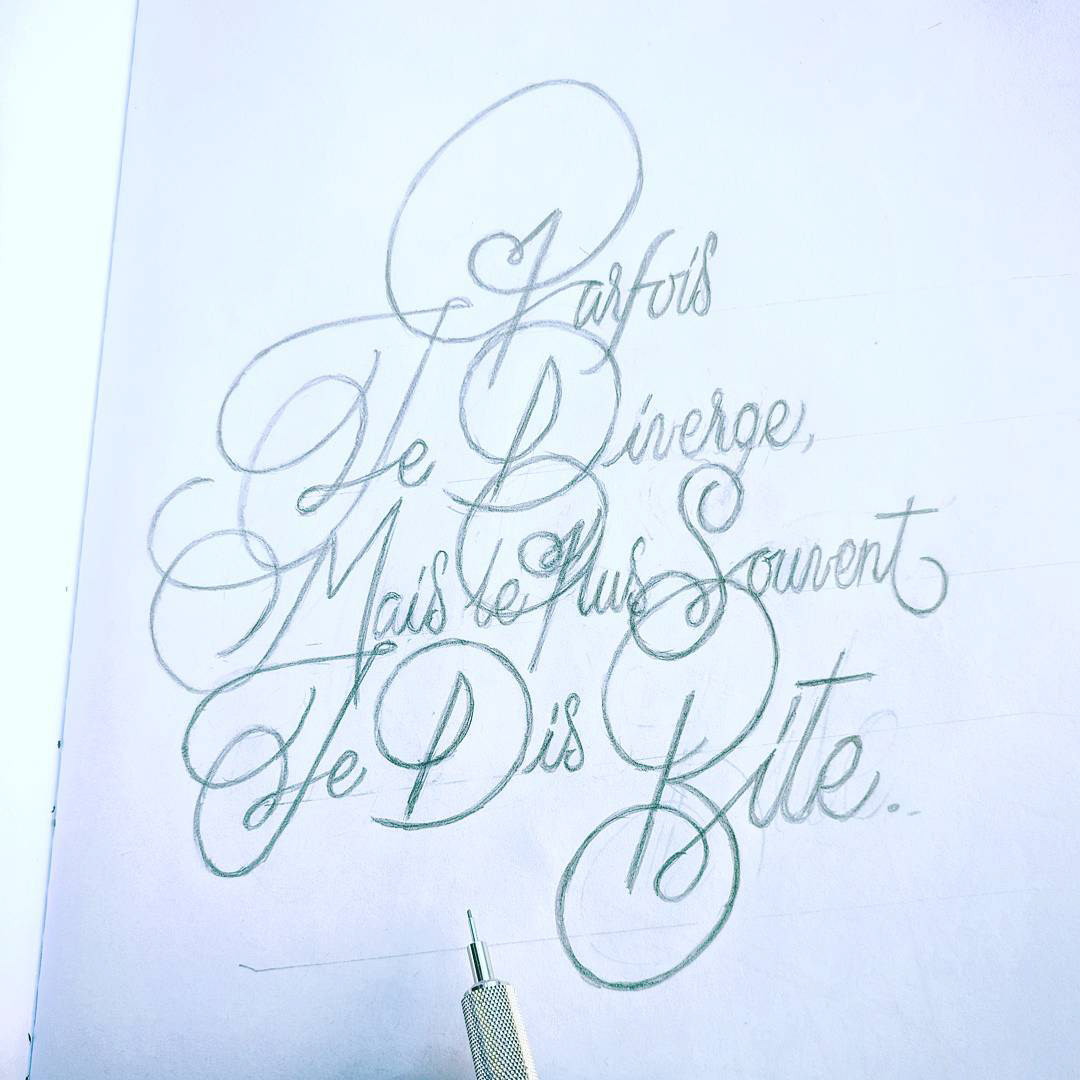 Parfois
Je Diverge,
Mais le Plus Souvent
Je Dis Bite.